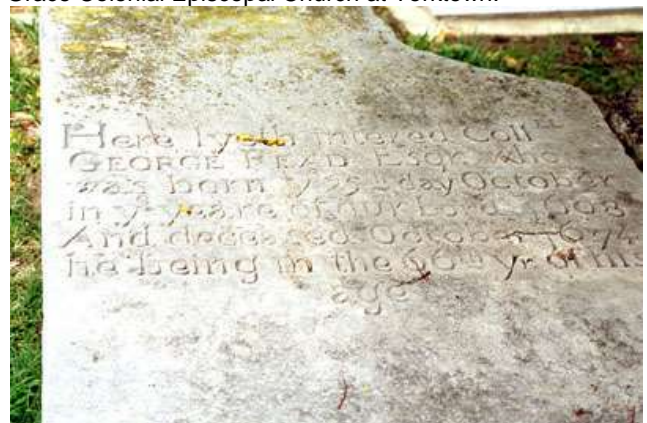 Grace Colonial Episcopal Church at Yorktown.
Here lyeth interred Coll
GEORGE READ Esqr. who
was born ye 25th day October
in ye yeare of our Lord 1608
And deceased October 1674
he being in the 66th yr of his
age